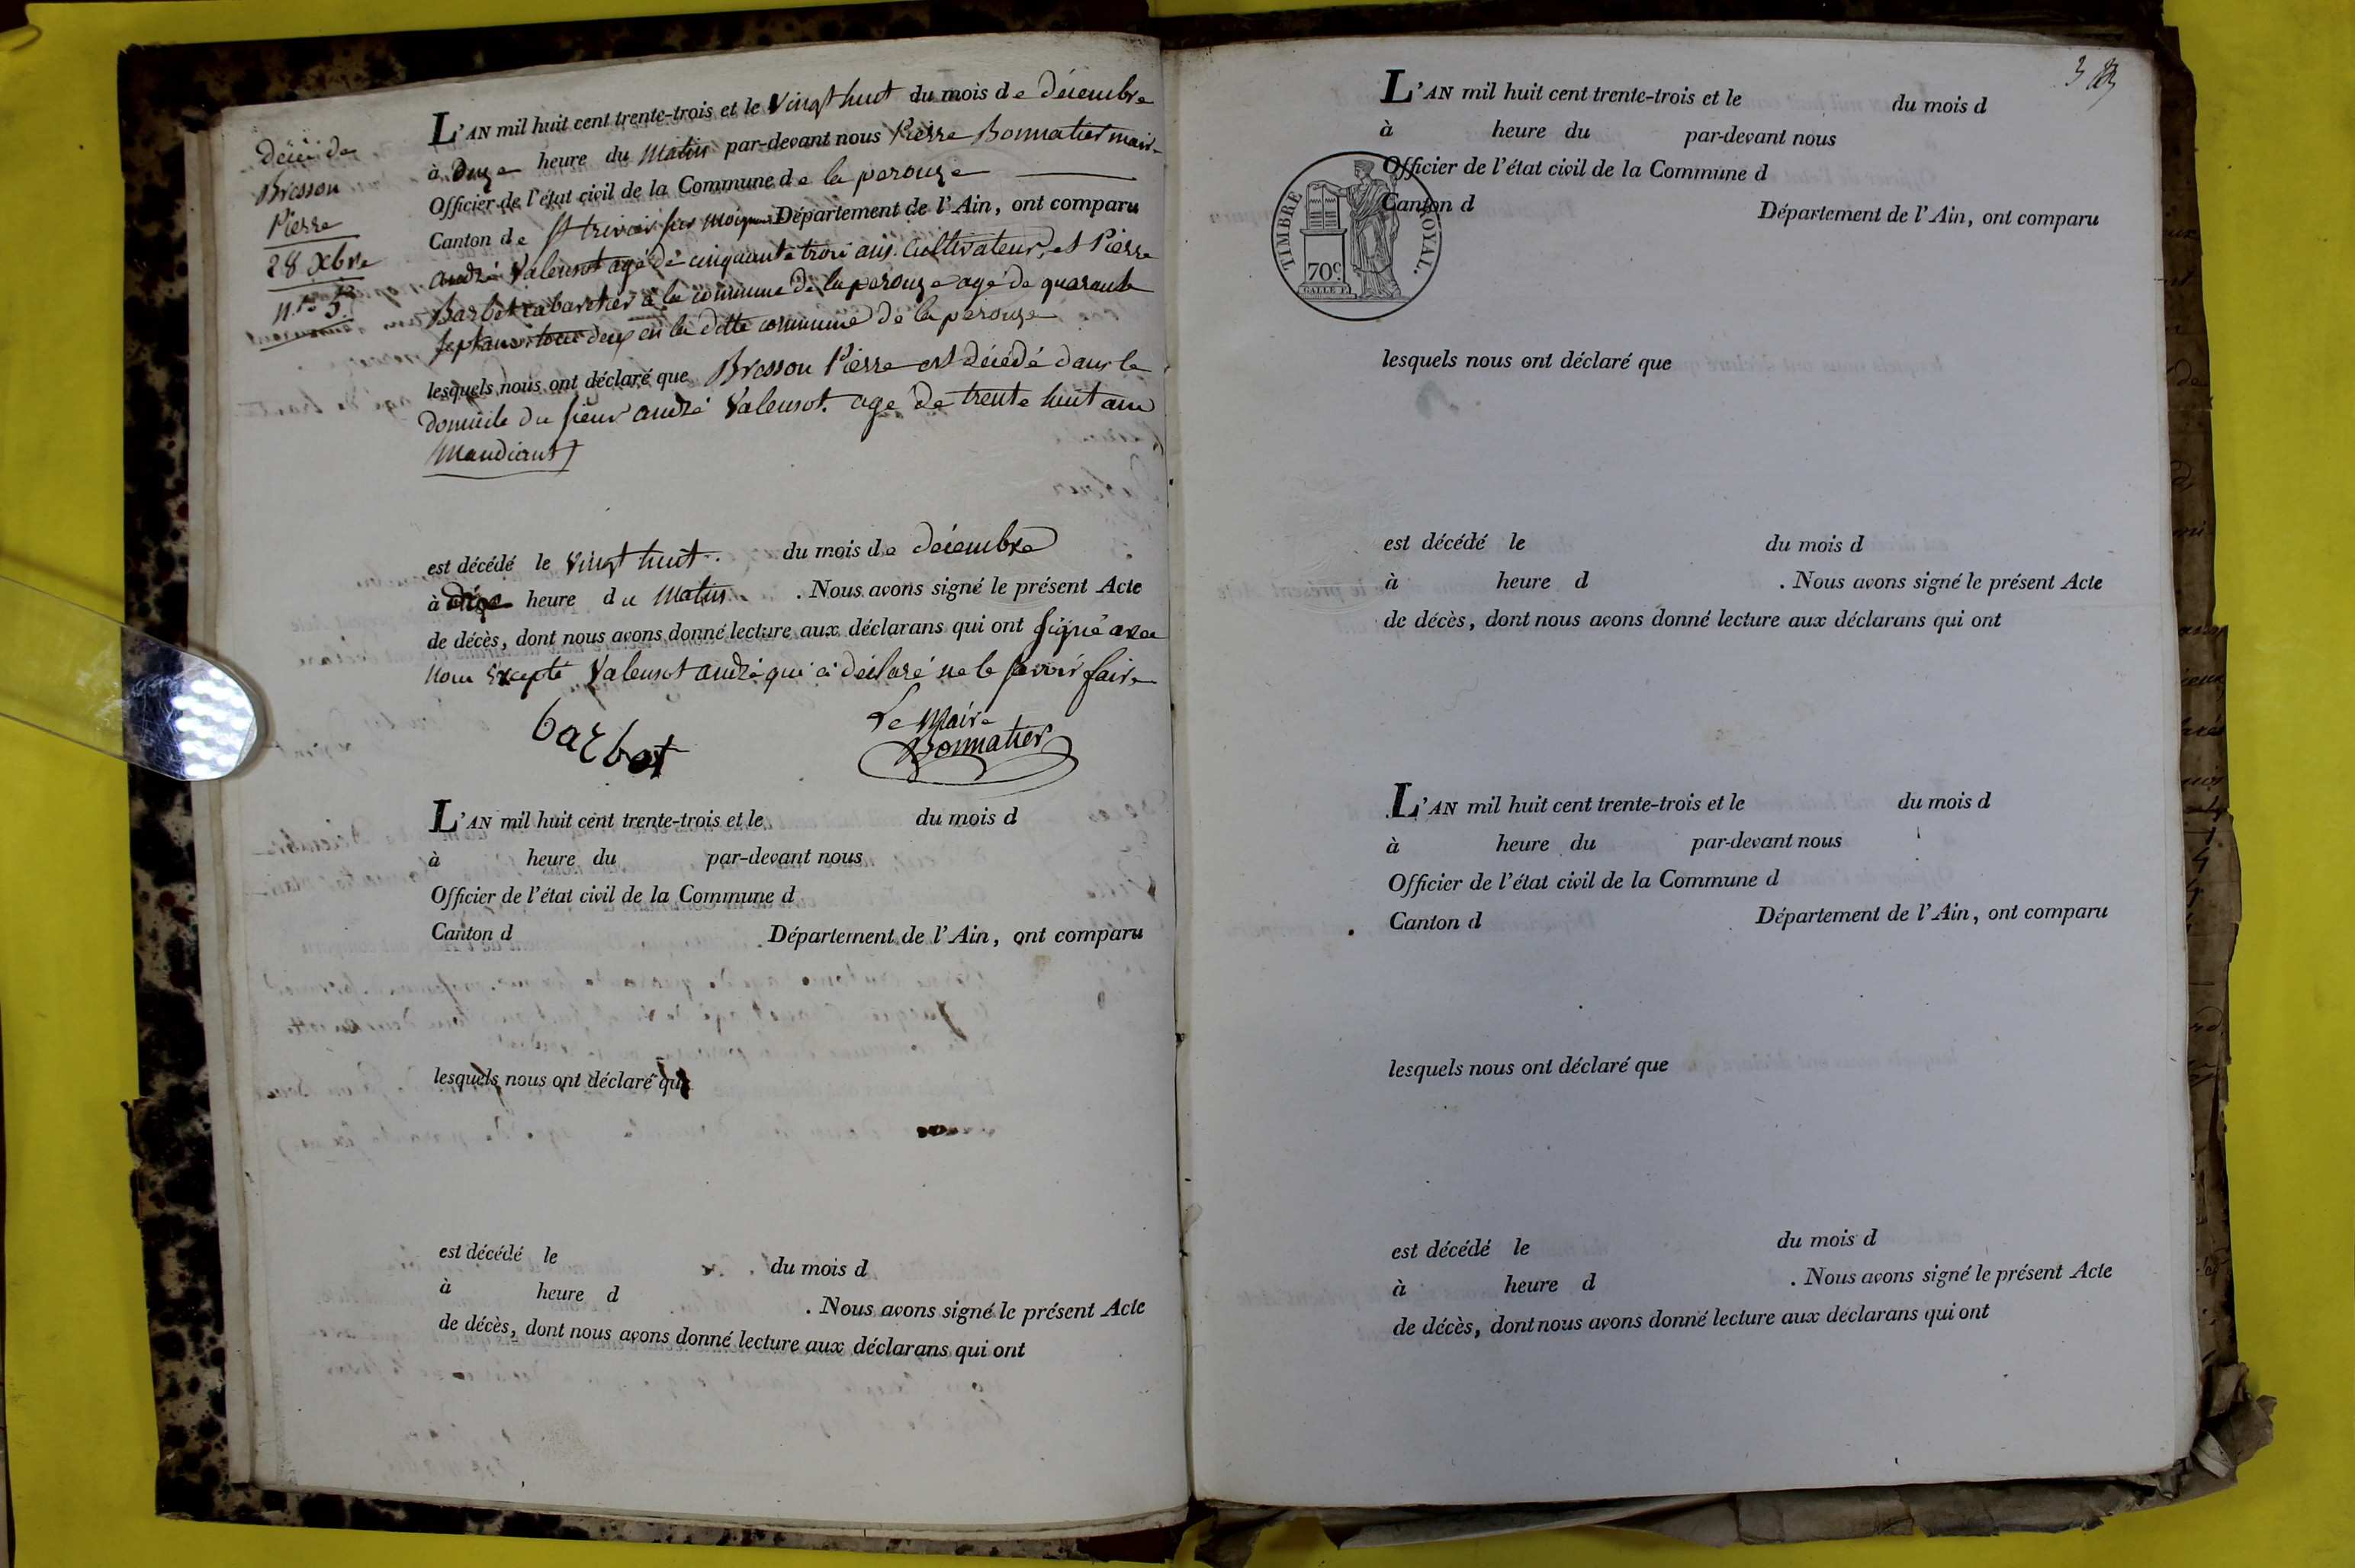 décès de
Bresson
Pierre
28 Xbre
n.° 5.
L'AN mil huit cent trente-trois et le Vingt huit du mois de décembre
à onze heure du Matin par-devant nous Pierre Bonnatier maire
Officier de l'état civil de la Commune de la perouze
Canton de St trivier sur Moignans Département de l'Ain, ont comparu
andré Valensot agé de cinquante trois ans. Cultivateur, et Pierre
Barbet cabaretier à la commune de la perouze agé de quarante
sept ans tous deux en la ditte commune de la perouze
lesquels nous ont déclaré que Bresson Pierre est décédé dans le
domicile du sieur andré Valensot. age de trente huit ans
Mandiant
est décédé le vingt huit. du mois de décembre
à heure du Matin . Nous avons signé le présent Acte
de décès, dont nous avons donné lecture aux déclarans qui ont signé avec
nous Excepté Valensot andré qui a déclaré ne le savoir faire
barbet
Le Maire
Bonnatier
L'AN mil huit cent trente-trois et le du mois d
à heure du par-devant nous
Officier de l'état civil de la Commune d
Canton d Département de l'Ain, ont comparu
lesquels nous ont déclaré que
est décédé le du mois d
à heure d . Nous avons signé le présent Acte
de décès, dont nous avons donné lecture aux déclarans qui ont
3
L'AN mil huit cent trente-trois et le du mois d
à heure du par-devant nous
Officier de l'état civil de la Commune d
Canton d Département de l'Ain, ont comparu
TIMBRE ROYAL.
70c.
GALLE F.
lesquels nous ont déclaré que
est décédé le du mois d
à heure d . Nous avons signé le présent Acte
de décès, dont nous avons donné lecture aux déclarans qui ont
L'AN mil huit cent trente-trois et le du mois d
à heure du par-devant nous
Officier de l'état civil de la Commune d
Canton d Département de l'Ain, ont comparu
lesquels nous ont déclaré que
est décédé le du mois d
à heure d . Nous avons signé le présent Acte
de décès, dont nous avons donné lecture aux déclarans qui ont